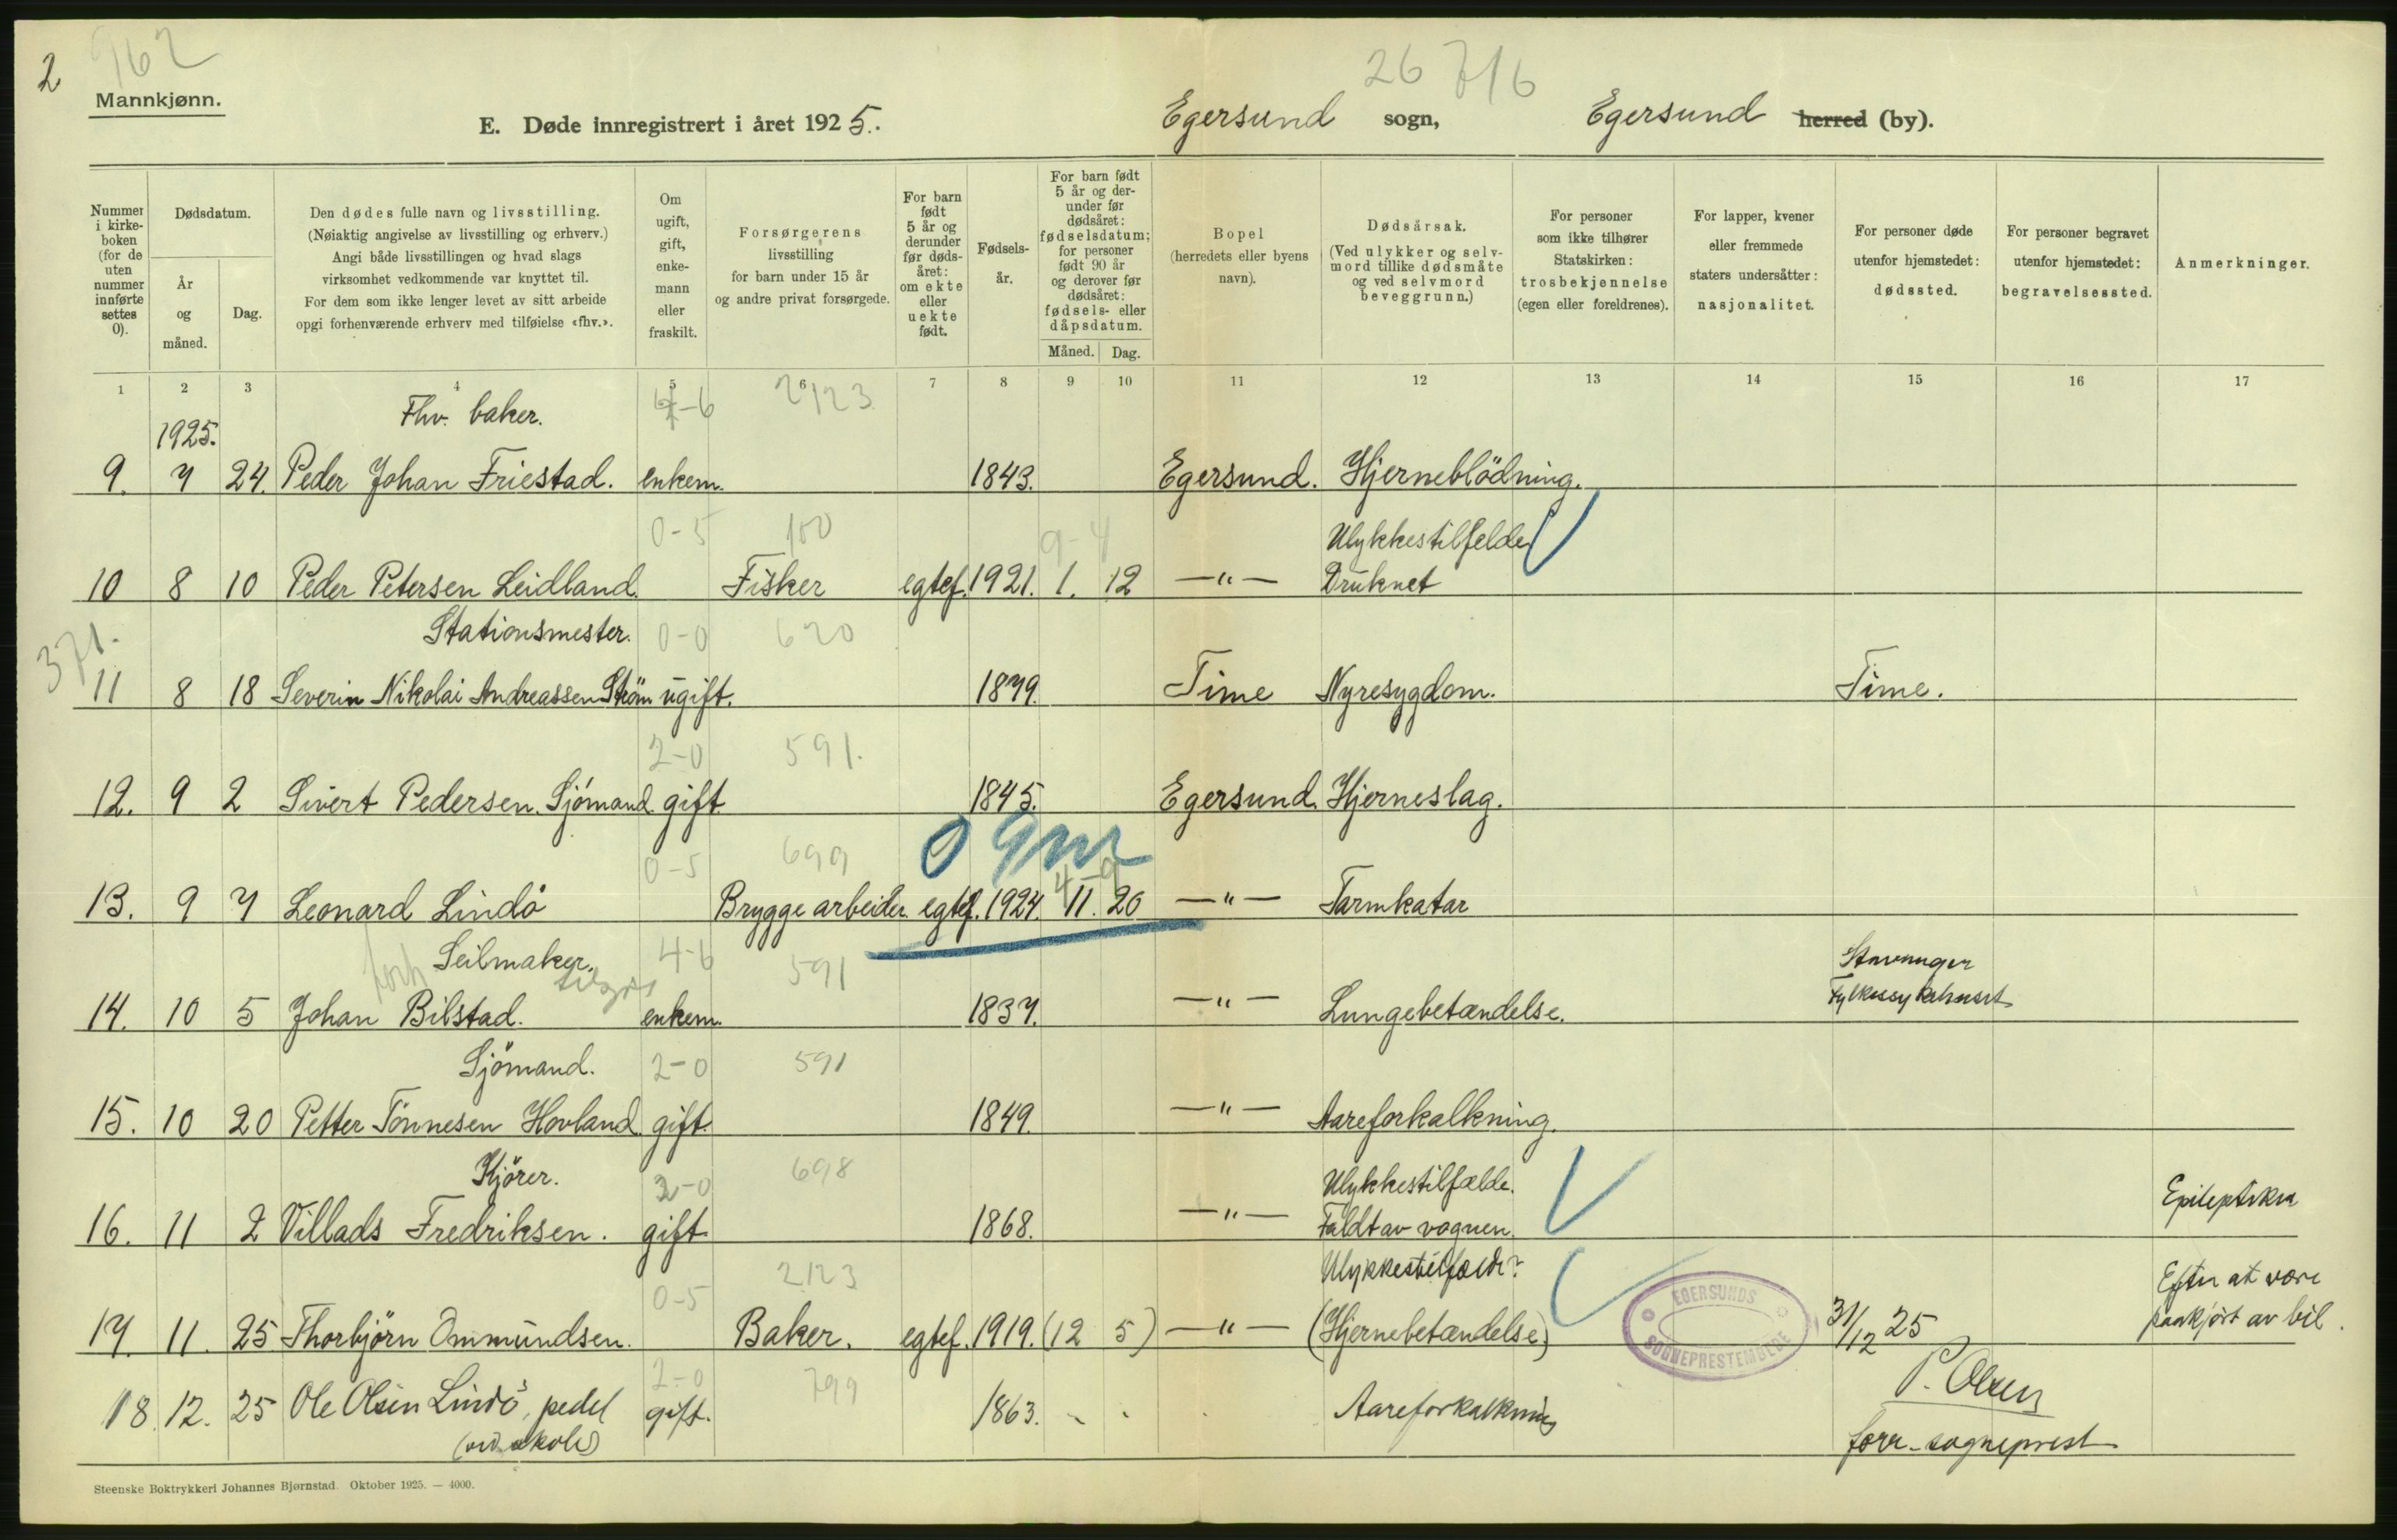 2 962
Mannkjønn.
E. Døde innregistrert i året 1925. Egersund sogn, Egersund herred (by).
26 716
Nummer i kirke-boken (for de uten nummer innførte settes 0).
Dødsdatum.
År og måned.
Dag.
Den dødes fulle navn og livsstilling.
(Nøiaktig angivelse av livsstilling og erhverv.)
Angi både livsstillingen og hvad slags
virksomhet vedkommende var knyttet til.
For dem som ikke lenger levet av sitt arbeide
opgi forhenværende erhverv med tilføielse «fhv.».
Om ugift, gift, enke-mann eller fraskilt.
Forsørgerens livsstilling
for barn under 15 år
og andre privat forsørgede.
For barn født 5 år og derunder før døds-året: om ekte eller uekte født.
Fødsels-år.
For barn født 5 år og der-under før dødsåret: fødselsdatum; for personer født 90 år og derover før dødsåret: fødsels- eller dåpsdatum.
Måned. Dag.
Bopel
(herredets eller byens navn).
Dødsårsak.
(Ved ulykker og selv-mord tillike dødsmåte og ved selvmord beveggrunn.)
For personer som ikke tilhører Statskirken: trosbekjennelse (egen eller foreldrenes).
For lapper, kvener eller fremmede staters undersåtter: nasjonalitet.
For personer døde utenfor hjemstedet: dødssted.
For personer begravet utenfor hjemstedet: begravelsessted.
Anmerkninger.
1 2 3 4 5 6 7 8 9 10 11 12 13 14 15 16 17
Fhv. baker. -6 2123
1925.
9. 7 24. Peder Johan Friestad. enkem. 1843. Egersund. Hjerneblödning.
0-5 100 9-4 Ulykkestilfelde
10 8 10 Peder Petersen Leidland. Fisker egtef. 1921. 1. 12 —"— Druknet
371. Stationsmester. 0-0 620
11 8 18 Severin Nikolai Andreassen Ström ugift. 1879. Time Nyresygdom. Time.
2-0 591.
12. 9 2 Sivert Pedersen. Sjömand gift 1845. Egersund. Hjerneslag.
0-5 699 0 9 m 4-9
13. 9 7 Leonard Lindö Bryggearbeider. egtef. 1924. 11. 20 —"— Tarmkatar
Seilmaker. 4-6 591 Stavanger
14. 10 5 Johan Bilstad. enkem. 1837. —"— Lungebetændelse. Fylkessykehuset
Sjömand. 2-0 591
15. 10 20 Petter Tönnesen Hovland gift. 1849. —"— Aareforkalkning.
Kjörer. 2-0 698 Ulykkestilfælde. Epileptiker
16. 11 2 Villads Fredriksen. gift. 1868. —"— Faldt av vognen.
0-5 2123 Ulykkestilfælde? Efter at være
17. 11. 25 Thorbjörn Ommundsen. Baker. egtef. 1919. (12 5) —"— (Hjernebetændelse) 31/12 25 paakjört av bil.
EGERSUNDS SOGNEPRESTEMBEDE
2-0 799
18. 12. 25 Ole Olsen Lindö, pedel gift. 1863. Aareforkalkning P. Olsen
(ved skole) forr. sogneprest
Steenske Boktrykkeri Johannes Bjørnstad. Oktober 1925. — 4000.